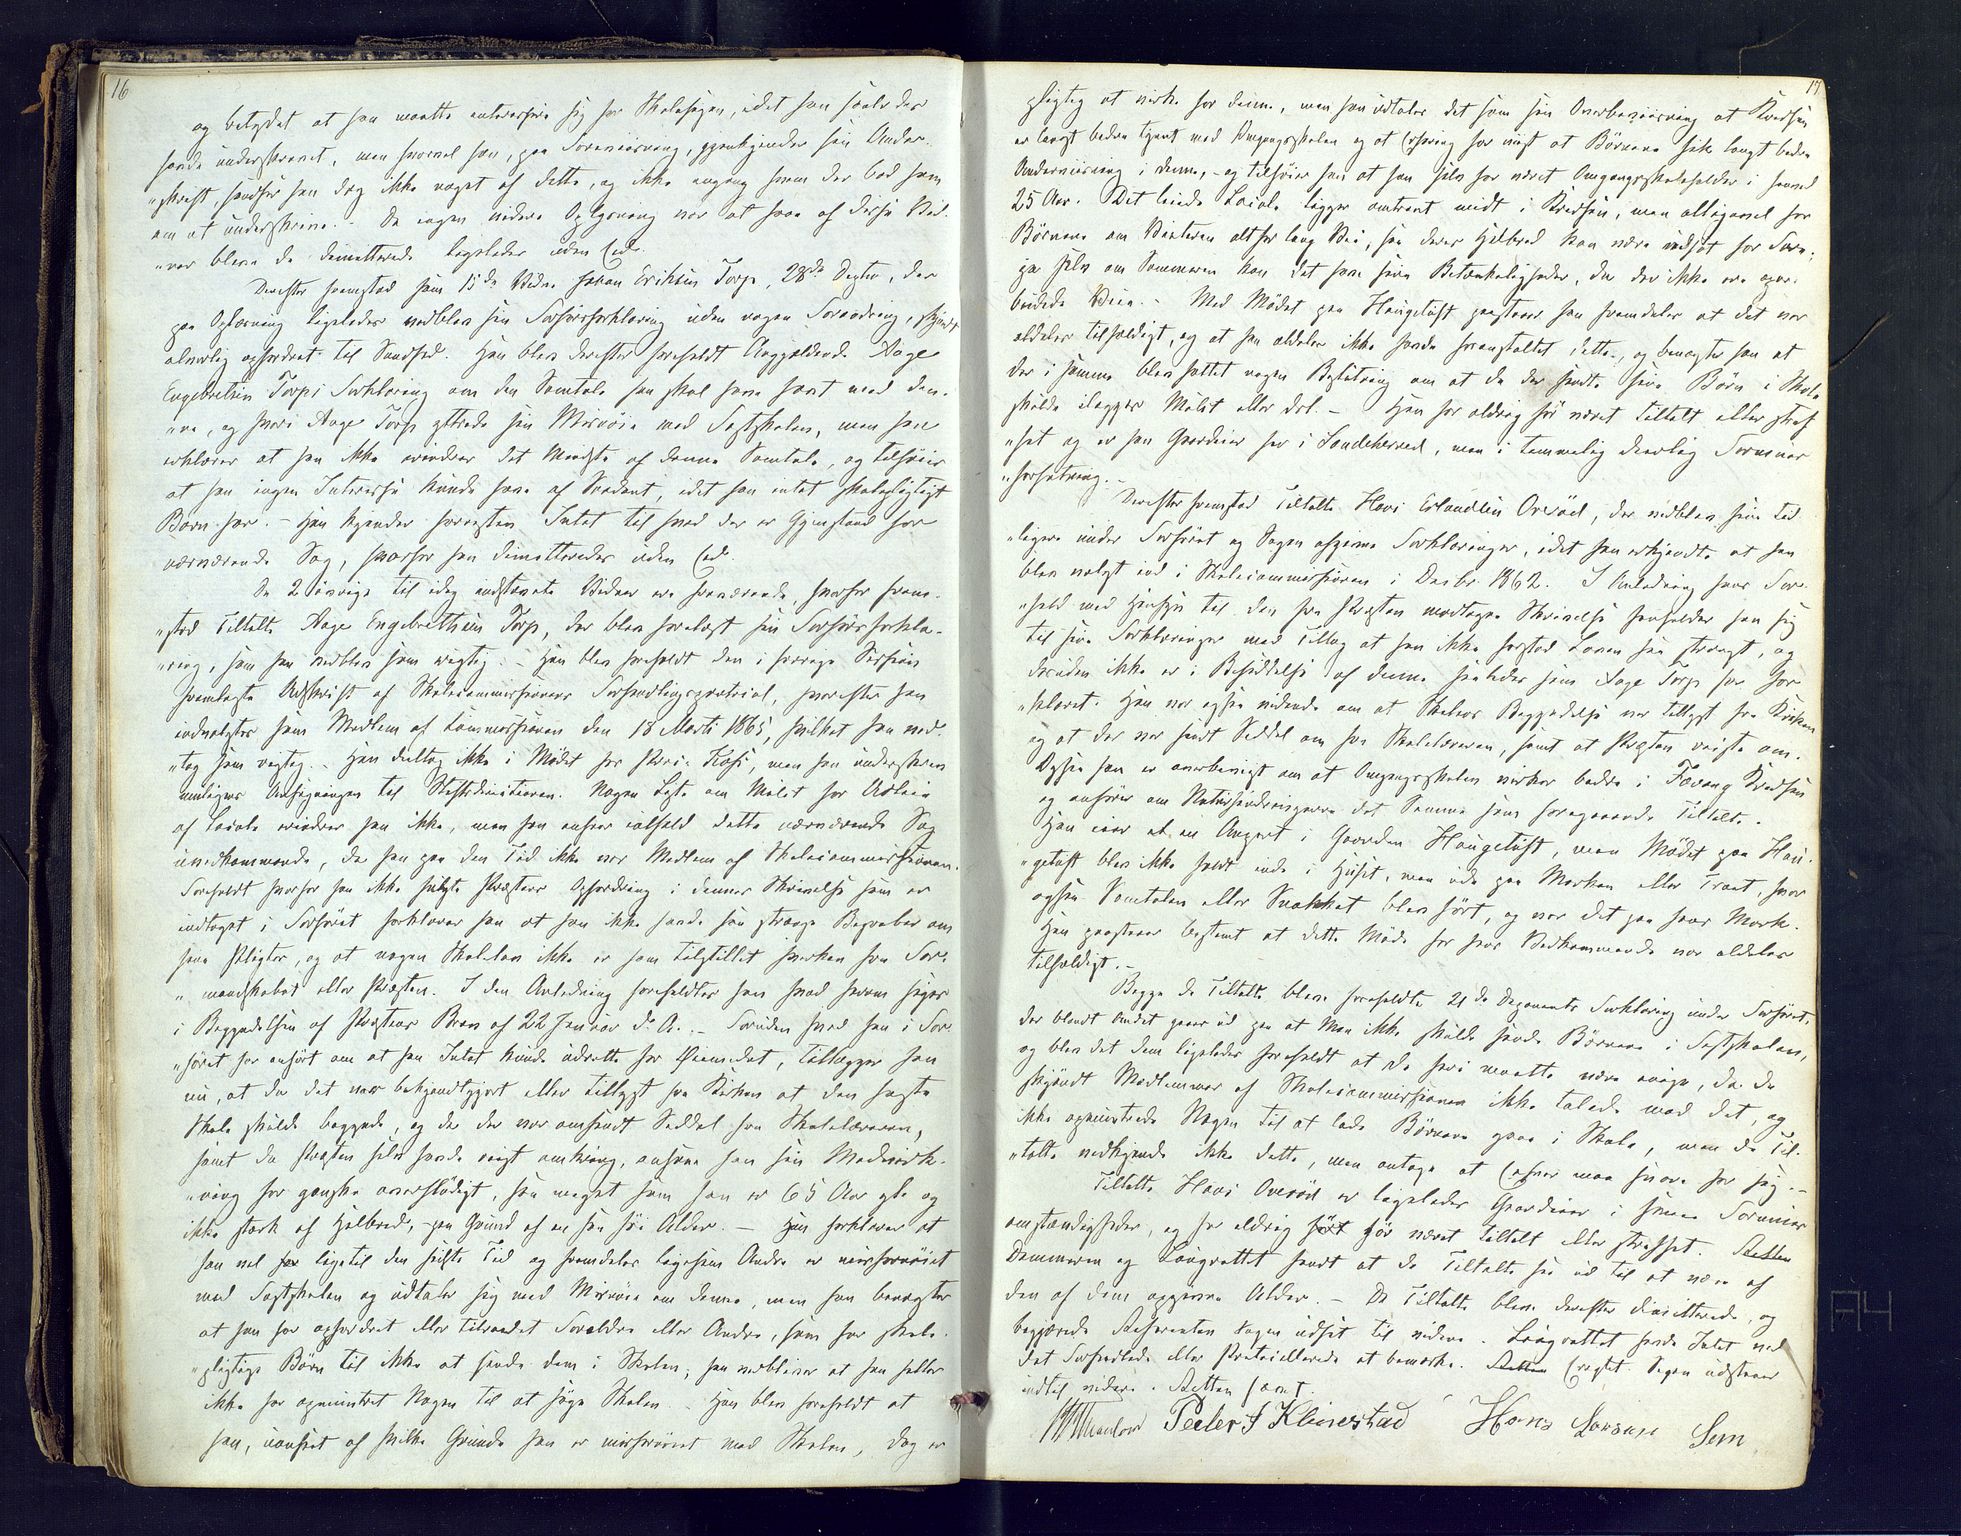 16
og betydet at han maatte interessere sig for Skolesagen, idet han saaledes
havde underskrevet, men hvorvel han, paa Foreviisning, gjenkjender sin Under-
"skrift, husker han dog ikke noget af dette, og ikke engang hvem der bad ham
om at underskrive. Da ingen videre Oplysning var at faae af disse Vid-
"ner bleve de dimitterede ligeledes uden Ed.
Derefter fremstod som 15de Vidne Johan Eriksen Torp, 28de Deptr, der
paa Oplæsning ligeledes vedblev sin Forhørsforklaring uden nogen Forandring, skjøndt
alvorlig opfordret til Sandhed. Han blev derefter foreholdt Angjældende Aage
Engebretsen Torps Forklaring om den Samtale han skal have havt med den-
"ne, og hvori Aage Torp yttrede sin Misnøie med Fastskolen, men han
erklærer at han ikke erindrer det Mindste af denne Samtale, og tilføier
at han ingen Interesse kunde have af Saadant, idet han intet skolepligtigt
Barn har. - Han kjender forresten Intet til hvad der er Gjenstand for
nærværende Sag, hvorfor han dimitteredes uden Ed.
De 2 øvrige til idag indstævnte Vidner ere fraværende, hvorfor frem-
"stod Tiltalte Aage Engebrethsen Torp, der blev forelæst sin Forhørsforkla-
"ring, som han vedblev som rigtig. - Han blev foreholdt den i forrige Session
fremlagte Udskrift af Skolecommissionens Forhandlingsprotocol, hvorefter han
indvalgtes som Medlem af Commissionen den 18 Marts 1865, hvilket han ved-
"tog som rigtig. - Han deltog ikke i Mødet hos Maria Kjøs, men han underskrev
rimeligvis Ansøgningen til Stiftsdirectionen. Nogen Liste om Mulct for Udleie
af Locale erindrer han ikke, men han anseer ialfald dette nærværende Sag
uvedkommende, da han paa den Tid ikke var Medlem af Skolecommissionen.
Foreholdt hvorfor han ikke fulgte Præstens Opfordring i dennes Skrivelse som er
indtaget i Forhøret forklarer han at han ikke havde saa strænge Begreber om
sine Pligter, og at nogen Skolelov ikke er ham tilstillet hverken fra For-
"mandskabet eller Præsten. I den Anledning foreholdtes han hvad herom siges
i Begyndelsen af Præstens Brev af 22 Januar d. A. - Foruden hvad han i For-
"høret har anført om at han Intet kunde udrette for Øiemedet, tillægger han
nu, at da det var bekjendtgjort eller tillyst fra Kirken at den faste
Skole skulde begynde, og da der var omsendt Seddel fra Skolelæreren,
samt da Præsten selv havde reist omkring, ansaae han sin Medvirk-
"ning for ganske overflødigt, saa meget som han er 65 Aar gl. og
ikke stærk af Helbred, paa Grund af en saa høi Alder. - Han forklarer at
han vel har ligetil den sidste Tid og fremdeles ligesom Andre er misfornøiet
med Fastskolen og udtaler sig med Misnøie om denne, men han benægter
at han har opfordret eller tilraadet Forældre eller Andre, som har skole-
"pligtige Børn til ikke at sende dem i Skolen; han vedbliver at han heller
ikke har opmuntret Nogen til at søge Skolen. - Han blev foreholdt at
han, uanseet af hvilke Grunde han er misfornøiet med Skolen, dog er
17
pligtig at virke for denne, men han udtaler det som sin Overbeviisning at Kredsen
er langt bedre tjent med Omgangsskolen og at Erfaring har viist at Børnene fik langt bedre
Underviisning i denne, - og tilføier han at han selv har været Omgangsskoleholder i henved
25 Aar. Det leiede Locale ligger omtrent midt i Kredsen, men alligevel har
Børnene om Vinteren altfor lang Vei, saa deres Helbred kan være udsat for Fare;
ja selv om Sommeren kan det have sine Betænkeligheder, da der ikke ere opar-
beidede Veie. - Med Mødet paa Haugetuft paastaaer han fremdeles at det var
aldeles tilfældigt, og at han aldeles ikke havde foranstaltet dette, og benægter han at
der i samme blev fattet nogen Beslutning om at de der sendte sine Børn i Skole
skulde ilægges Mulct eller dsl. - Han har aldrig før været tiltalt eller straf-
"fet og er han Gaardeier her i Sandeherred, men i temmelig daarlig Formues
"forfatning. -
Derefter fremstod Tiltalte Hovi Erlandsen Overød, der vedblev sine tid-
"ligere under Forhøret og Sagen afgivne Forklaringer, idet han erkjendte at han
blev valgt ind i Skolecommissionen i Decbr. 1862. I Anledning hans For-
"hold med Hensyn til den fra Præsten modtagne Skrivelse henholder han sig
til sine Forklaringer med Tillæg at han ikke forstod Loven saa strengt, og
desuden ikke er i Besiddelse af denne saaledes som Aage Torp har for-
"klaret. Han var ogsaa vidende om at Skolens Begyndelse var tillyst fra Kirken
og at der var sendt Seddel om fra Skolelæreren, samt at Præsten reiste om.
Ogsaa han er overbeviist om at Omgangsskolen virker bedre i Fævang Kredsen
og anfører om Naturhindringerne det Samme som foregaaende Tiltalte.
Han eier et en Anpart i Gaarden Haugetuft, men Mødet paa Hau-
"getuft blev ikke holdt inde i Huset, men ude paa Marken eller Traet, hvor
ogsaa Samtalen eller Snakket blev ført, og var det paa hans Mark.
Han paastaaer bestemt at dette Møde for hans Vedkommende var aldeles
tilfældigt. -
Begge de Tiltalte bleve foreholdte 21de Deponents Forklaring under Forhøret,
der blandt Andet gaaer ud paa at Man ikke skulde sende Børnene i Fastskolen,
og blev det dem ligeledes foreholdt at de heri maatte være enige, da de
skjøndt Medlemmer af Skolecommissionen ikke talede mod det, og
ikke opmuntrede Nogen til at lade Børnene gaae i Skole, men de Til-
"talte vedkjende ikke dette, men antage at Enhver maa svare for sig. -
Tiltalte Hovi Overød er ligeledes Gaardeier i smaae Formues
omstændigheder, og har aldrig før været tiltalt eller straffet. Retten
Dommeren og Laugrettet fandt at de Tiltalte saae ud til at være af
den af dem opgivne Alder. - De Tiltalte bleve derefter dimitterede, og
begjærede Referenten Sagen udsat til videre. Laugrettet havde Intet ved
det Forhandlede eller Protocollerede at bemærke. Retten Eragtet. Sagen udstaaer
indtil videre. Retten hævet.
Peder J Klinestad Hans Larsen Sem